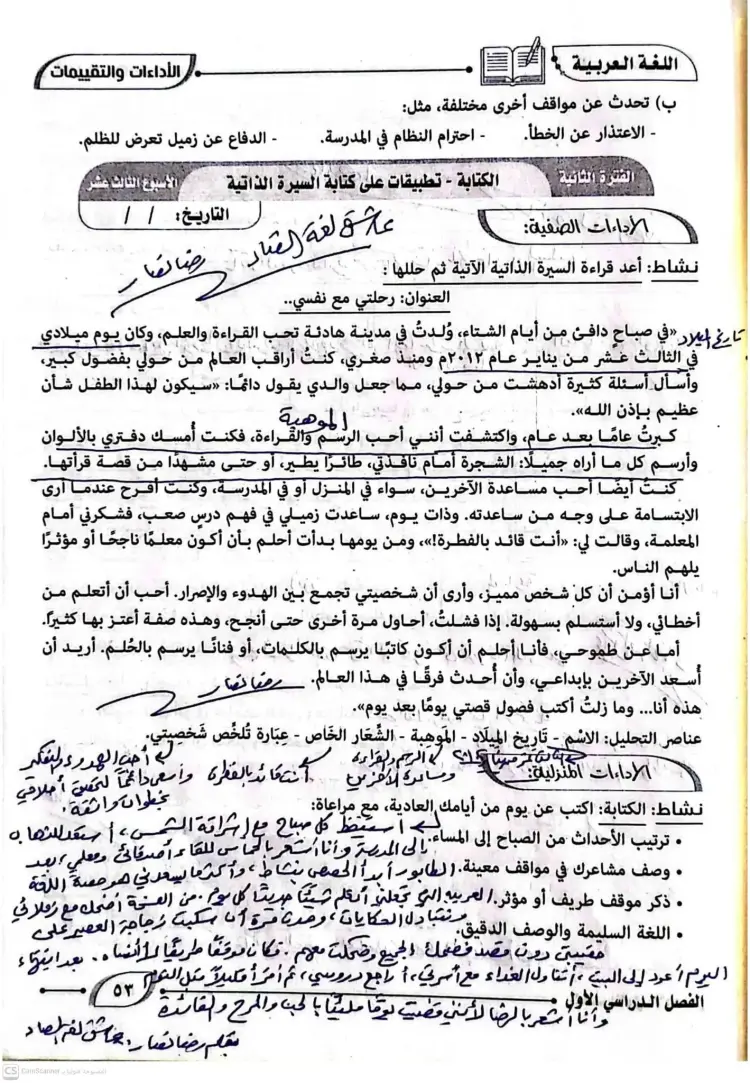 اللغة العربية
الأداءات والتقييمات
ب) تحدث عن مواقف أخرى مختلفة، مثل:
- الاعتذار عن الخطأ. - احترام النظام في المدرسة. - الدفاع عن زميل تعرض للظلم.
الفترة الثانية
الكتابة - تطبيقات على كتابة السيرة الذاتية
الأسبوع الثالث عشر
التاريخ: / /
الأداءات الصفية:
عاشق لغة الضاد
رضا نصار
نشاط: أعد قراءة السيرة الذاتية الآتية ثم حللها :
العنوان: رحلتي مع نفسي..
تاريخ الميلاد
«في صباحٍ دافئ من أيام الشتاء، وُلدتُ في مدينة هادئة تحب القراءة والعلم، وكان يوم ميلادي
في الثالث عشر من يناير عام ٢٠١٢م ومنذ صغري، كنتُ أراقب العالم من حولي بفضول كبير،
وأسأل أسئلة كثيرة أدهشت من حولي، مما جعل والدي يقول دائمًا: «سيكون لهذا الطفل شأن
عظيم بإذن الله».
الموهبة
كبرتُ عامًا بعد عام، واكتشفت أنني أحب الرسم والقراءة، فكنت أمسك دفتري بالألوان
وأرسم كل ما أراه جميلًا: الشجرة أمام نافذتي، طائرًا يطير، أو حتى مشهدًا من قصة قرأتها.
كنتُ أيضًا أحب مساعدة الآخرين، سواء في المنزل أو في المدرسة، وكنت أفرح عندما أرى
الابتسامة على وجه من ساعدته. وذات يوم، ساعدت زميلي في فهم درسٍ صعب، فشكرني أمام
المعلمة، وقالت لي: «أنت قائد بالفطرة!»، ومن يومها بدأت أحلم بأن أكون معلمًا ناجحًا أو مؤثرًا
يلهم الناس.
أنا أؤمن أن كل شخص مميز، وأرى أن شخصيتي تجمع بين الهدوء والإصرار. أحب أن أتعلم من
أخطائي، ولا أستسلم بسهولة. إذا فشلتُ، أحاول مرة أخرى حتى أنجح، وهذه صفة أعتز بها كثيرًا.
أما عن طموحي، فأنا أحلم أن أكون كاتبًا يرسم بالكلمات، أو فنانًا يرسم بالحُلم. أريد أن
أُسعد الآخرين بإبداعي، وأن أُحدث فرقًا في هذا العالم.
رضا نصار
هذه أنا... وما زلتُ أكتب فصول قصتي يومًا بعد يوم».
عناصر التحليل: الاسم - تاريخ الميلاد - الموهبة - الشعار الخاص - عبارة تلخص شخصيتي.
الرسم والقراءة
ومساعدة الآخرين
أنت قائد بالفطرة
أحب الهدوء والتفكير
وأسعى دائمًا لتحقيق أحلامي
بخطوات واثقة.
الأداءات المنزلية:
نشاط: الكتابة: اكتب عن يوم من أيامك العادية، مع مراعاة:
أستيقظ كل صباح مع إشراقة الشمس، أستعد للذهاب
• ترتيب الأحداث من الصباح إلى المساء.
إلى المدرسة وأنا أشعر بالحماس للقاء أصدقائي ومعلمي، بعد
• وصف مشاعرك في مواقف معينة.
الطابور أبدأ الحصص بنشاط، وأكثر ما يسعدني هو حصة اللغة
• ذكر موقف طريف أو مؤثر.
العربية التي تجعلني أتعلم شيئًا جديدًا كل يوم. أضحك مع زملائي
ونتبادل الحكايات، وحدث مرة أن سكبت زجاجة العصير على
• اللغة السليمة والوصف الدقيق.
حقيبتي دون قصد فضحك الجميع وضحكت معهم. فكان موقفًا طريفًا بعد انتهاء
اليوم أعود إلى البيت، أتناول الغداء مع أسرتي، أراجع دروسي، ثم أقرأ قليلًا قبل النوم
وأنا أشعر بالرضا لأنني قضيت يومًا مليئًا بالحب والمرح والفائدة
الفصل الدراسي الأول
٥٣
بقلم رضا نصار. عاشق لغة الضاد
CS CamScanner الممسوحة ضوئيا بـ